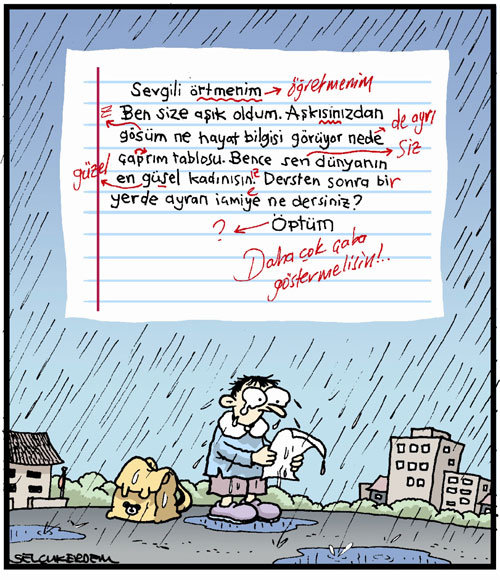 Sevgili örtmenim → öğretmenim
Ben size aşık oldum. Aşkısinızdan
gösüm ne hayat bilgisi görüyor nede de ayrı
çaprım tablosu. Bence sen dünyanın siz
güzel en güsel kadınısın. iz Dersten sonra bir
yerde ayran içmiye e ne dersiniz?
? ← Öptüm
Daha çok çaba
göstermelisin!..
SELÇUK ERDEM